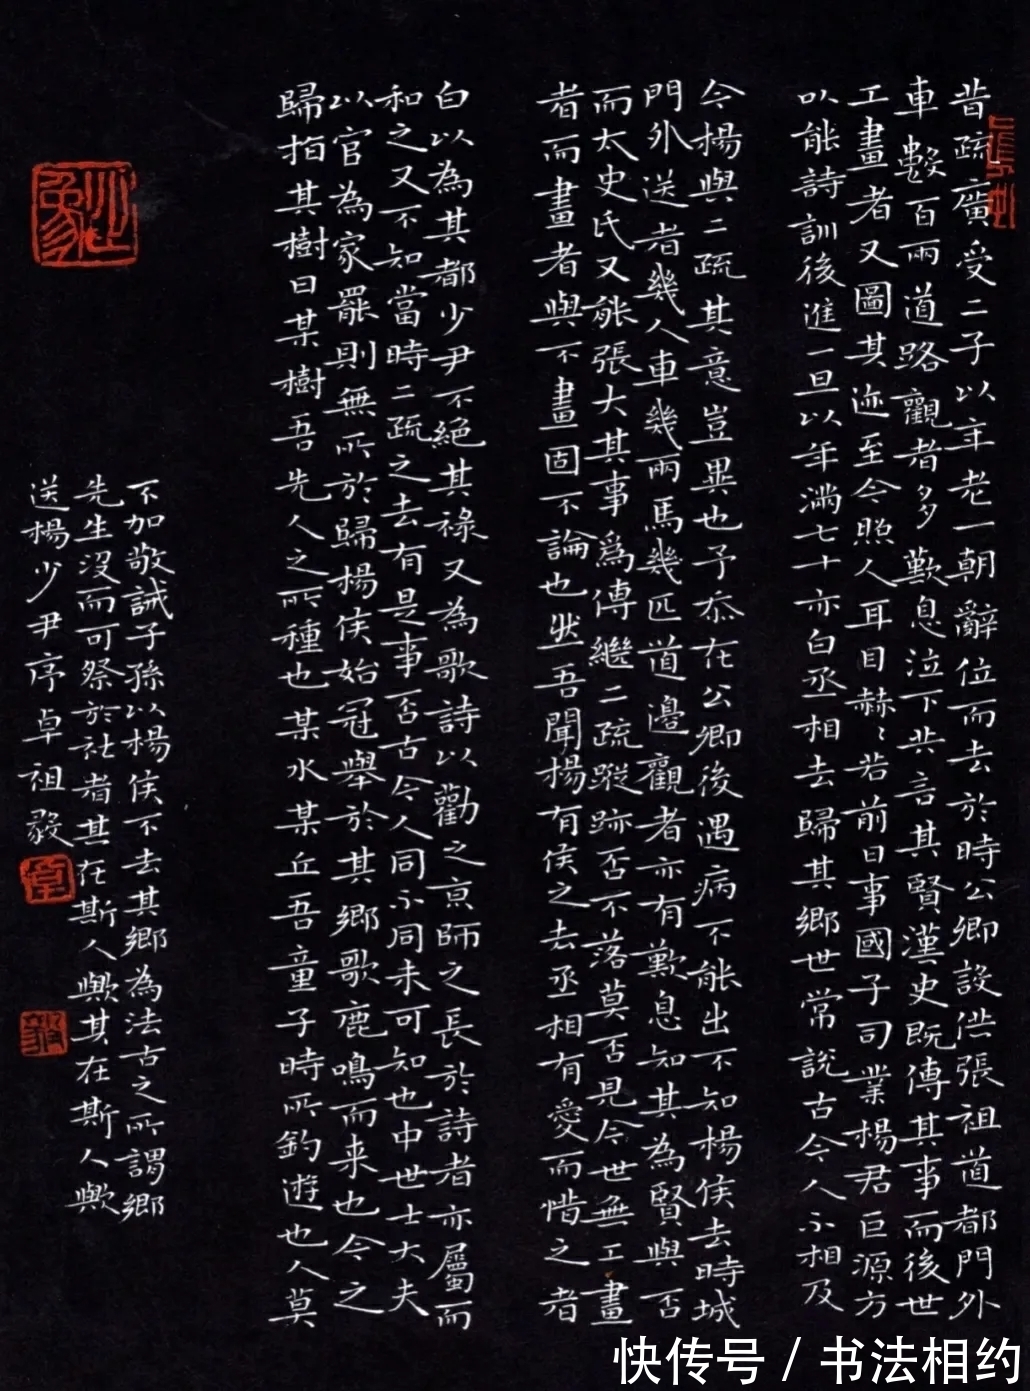 昔疏廣受二子以年老一朝辭位而去於時公卿設供張祖道都門外
車數百兩道路觀者多歎息泣下共言其賢漢史既傳其事而後世
工畫者又圖其迹至今照人耳目赫〻若前日事國子司業楊君巨源方
以能詩訓後進一旦以年滿七十亦白丞相去歸其鄉世常說古今人不相及
今楊與二疏其意豈異也予忝在公卿後遇病不能出不知楊侯去時城
門外送者幾人車幾兩馬幾匹道邊觀者亦有歎息知其為賢與否
而太史氏又能張大其事為傳繼二疏蹤跡否不落莫否見今世無工畫
者而畫者與不畫固不論也然吾聞楊有侯之去丞相有愛而惜之者
白以為其都少尹不絕其祿又為歌詩以勸之京師之長於詩者亦屬而
和之又不知當時二疏之去有是事否古今人同不同未可知也中世士大夫
以官為家罷則無所於歸楊侯始冠舉於其鄉歌鹿鳴而来也今之
歸指其樹曰某樹吾先人之所種也某水某丘吾童子時所釣遊也人莫
不加敬誡子孫以楊侯不去其鄉為法古之所謂鄉
先生沒而可祭於社者其在斯人歟其在斯人歟
送楊少尹序卓祖毅
快传号 / 书法相约